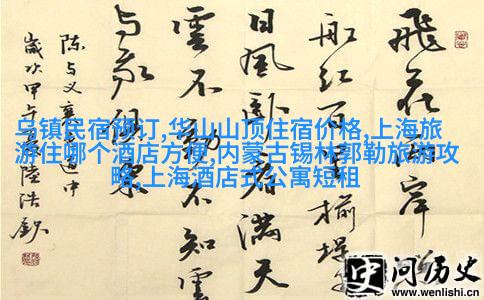 飛花两岸
船红百里榆堤
日風卧看满天
雲不動不知雲
与我俱東
陈与义襄邑道中
歲次甲午陸浩
乌镇民宿预订,华山山顶住宿价格,上海旅
游住哪个酒店方便,内蒙古锡林郭勒旅游攻
略,上海酒店式公寓短租
史问历史
www.wenlishi.cn